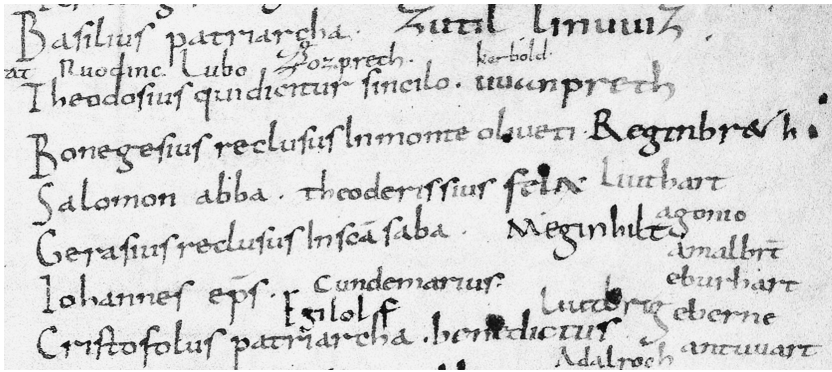 Basilius patriarcha. Zutil linuuiz
at Ruodinc Lubo Gozpreth. kerbold
Theodosius qui dicitur sincilo. uuanpreth
Bonegesius reclusus In monte oliueti. Reginbreht.
Salomon abba. theoderissius felix Liuthart
agomo
Gerasius reclusus In scā saba. Meginhilt
amalbrt
eburhart
Iohannes ep̄s. Cundemarius.
Egilolff Liutbrig eberne
Cristofolus patriarcha. benedictus antuuart
Adalroch